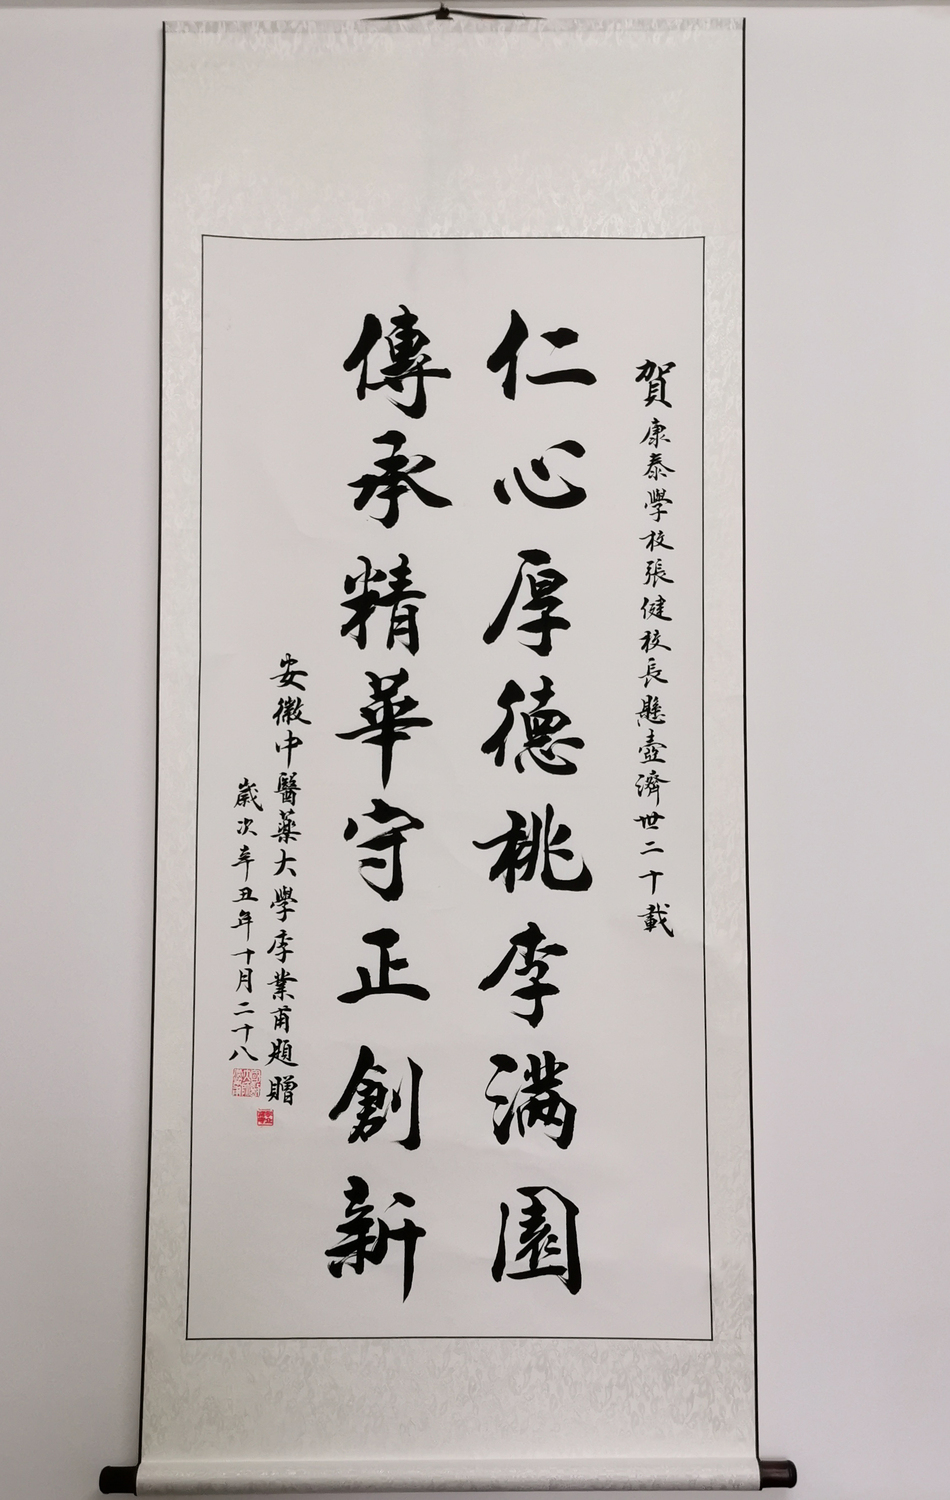 賀康泰學校張健校長懸壺濟世二十載
仁心厚德桃李滿園
傳承精華守正創新
安徽中醫藥大學李業甫題贈
歲次辛丑年十月二十八